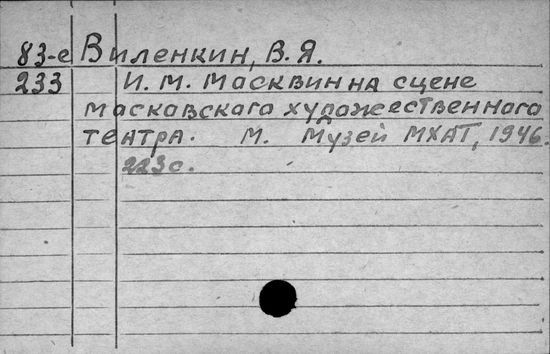 83-е Виленкин, В. Я.
233 И. М. Масквин на сцене
маскавскага художественнага
театра. М. Музей МХАТ, 1946.
223 с.